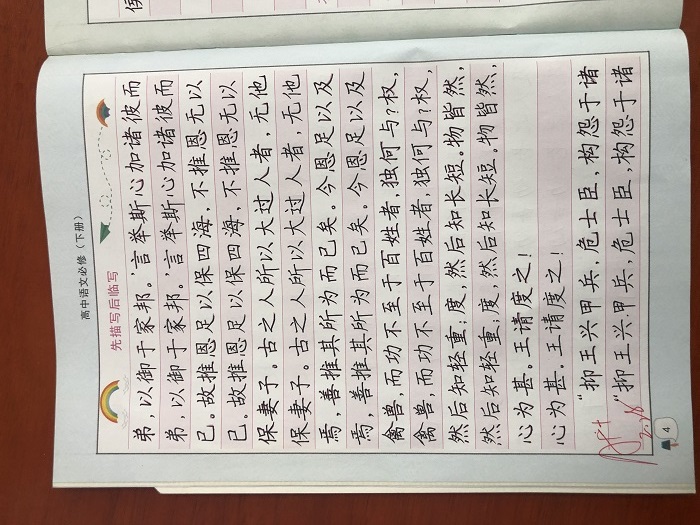 高中语文必修（下册）
先描写后临写
弟，以御于家邦。’言举斯心加诸彼而
弟，以御于家邦。’言举斯心加诸彼而
已。故推恩足以保四海，不推恩无以
已。故推恩足以保四海，不推恩无以
保妻子。古之人所以大过人者，无他
保妻子。古之人所以大过人者，无他
焉，善推其所为而已矣。今恩足以及
焉，善推其所为而已矣。今恩足以及
禽兽，而功不至于百姓者，独何与？权，
禽兽，而功不至于百姓者，独何与？权，
然后知轻重；度，然后知长短。物皆然，
然后知轻重；度，然后知长短。物皆然，
心为甚。王请度之！
心为甚。王请度之！
“抑王兴甲兵，危士臣，构怨于诸
“抑王兴甲兵，危士臣，构怨于诸
4